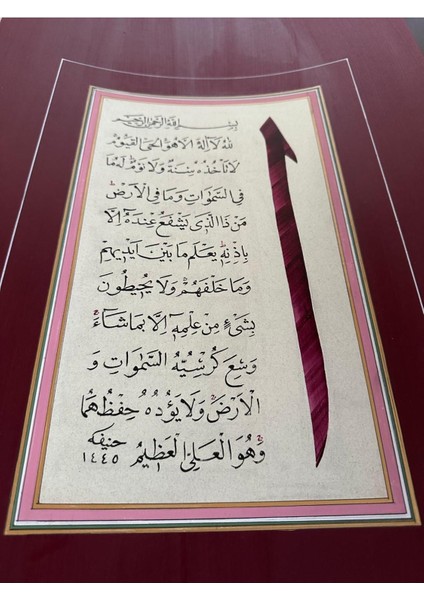 بسم الله الرحمن الرحيم
ا
لله لا اله الا هو الحي القيوم
لا تأخذه سنة ولا نوم له ما
في السموات وما في الارض
من ذا الذي يشفع عنده الا
باذنه يعلم ما بين ايديهم
وما خلفهم ولا يحيطون
بشيء من علمه الا بما شاء
وسع كرسيه السموات و
الارض ولا يؤده حفظهما
وهو العلي العظيم حنيفه
١٤٤٥